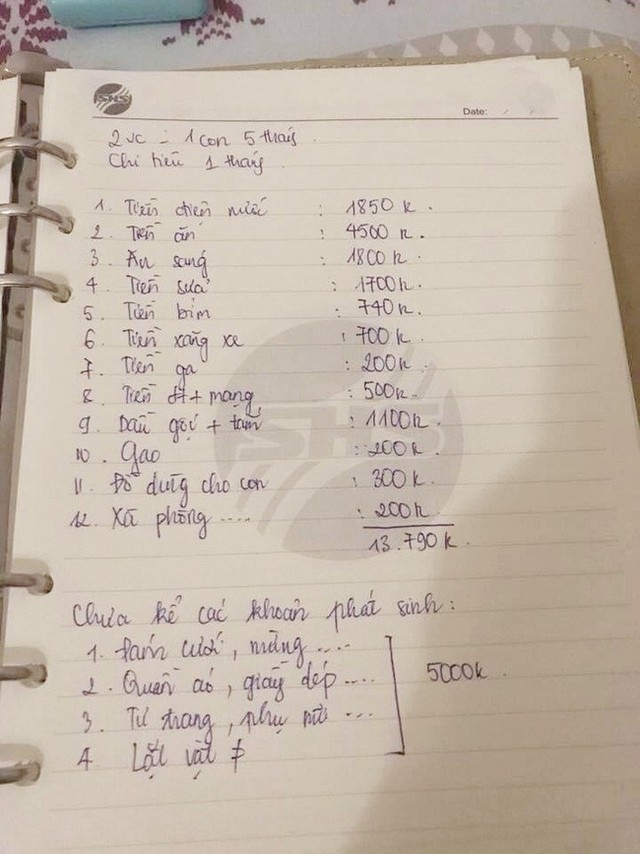 SHS
Date: / /
2 vc - 1 con 5 tháng.
Chi tiêu 1 tháng.
1. Tiền điện nước : 1850 k.
2. Tiền ăn : 4500 k.
3. Ăn sáng : 1800 k.
4. Tiền sữa : 1700 k.
5. Tiền bỉm : 740k.
6. Tiền xăng xe : 700 k.
7. Tiền ga : 200k.
8. Tiền đt + mạng : 500k.
9. Dầu gội + tắm : 1100k.
10. Gạo : 200 k.
11. Đồ dùng cho con : 300 k.
12. Xà phòng .... : 200k
13.790 k.
Chưa kể các khoản phát sinh:
1. Đám cưới, mừng ....
2. Quần áo, giầy dép ....
5000k.
3. Tư trang, phụ nữ ...
4. Lặt vặt ≠
SHS